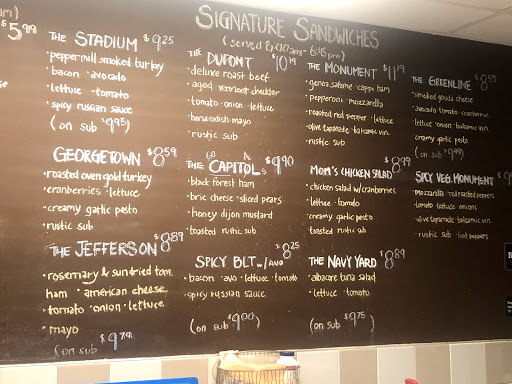 SIGNATURE SANDWICHES
$5.99
THE STADIUM $9.25
· peppermill smoked turkey
· bacon · avocado
· lettuce · tomato
· spicy russian sauce
(on sub $9.95)
GEORGETOWN $8.59
· roasted oven gold turkey
· cranberries · lettuce
· creamy garlic pesto
· rustic sub
THE JEFFERSON $8.89
· rosemary & sundried tom.
ham · american cheese
· tomato · onion · lettuce
· mayo
(on sub $9.79)
THE DUPONT $10.19
· deluxe roast beef
· aged vermont cheddar
· tomato · onion · lettuce
· horseradish mayo
· rustic sub
THE CAPITOL $9.90
· black forest ham
· brie cheese · sliced pears
· honey dijon mustard
· toasted rustic sub
SPICY BLT w/AVO $8.25
· bacon · avo · lettuce · tomato
· spicy russian sauce
(on sub $9.00)
THE MONUMENT $11.19
· genoa salame · cappi ham
· pepperoni · mozzarella
· roasted red pepper · lettuce
· olive tapanade · balsamic vin.
· rustic sub
MOM'S CHICKEN SALAD $8.99
· chicken salad w/cranberries
· lettuce · tomato
· creamy garlic pesto
· toasted rustic sub
THE NAVY YARD $8.89
· albacore tuna salad
· lettuce · tomato
(on sub $9.75)
THE GREENLINE $8.59
· smoked gouda cheese
· avocado · tomato · cranberries
· lettuce · onion · balsamic vin.
creamy garlic pesto
(on sub $9.99)
SPICY VEG. MONUMENT $9
mozzarella · red roasted peppers
tomato lettuce onions
· olive tapanade balsamic vin.
· rustic sub · hot peppers